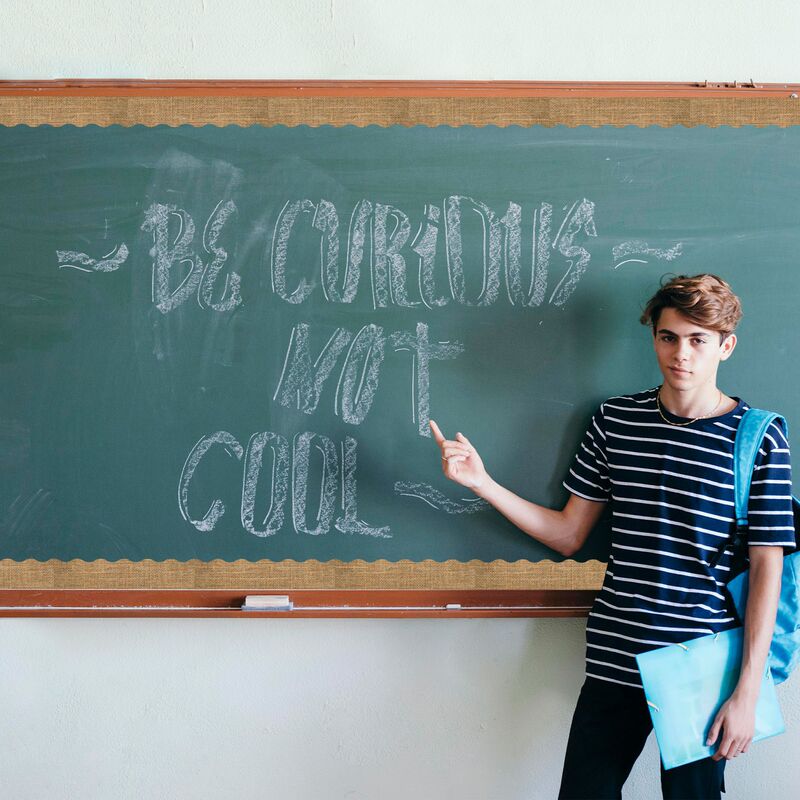 BE CURiOUS
NOT
COOL